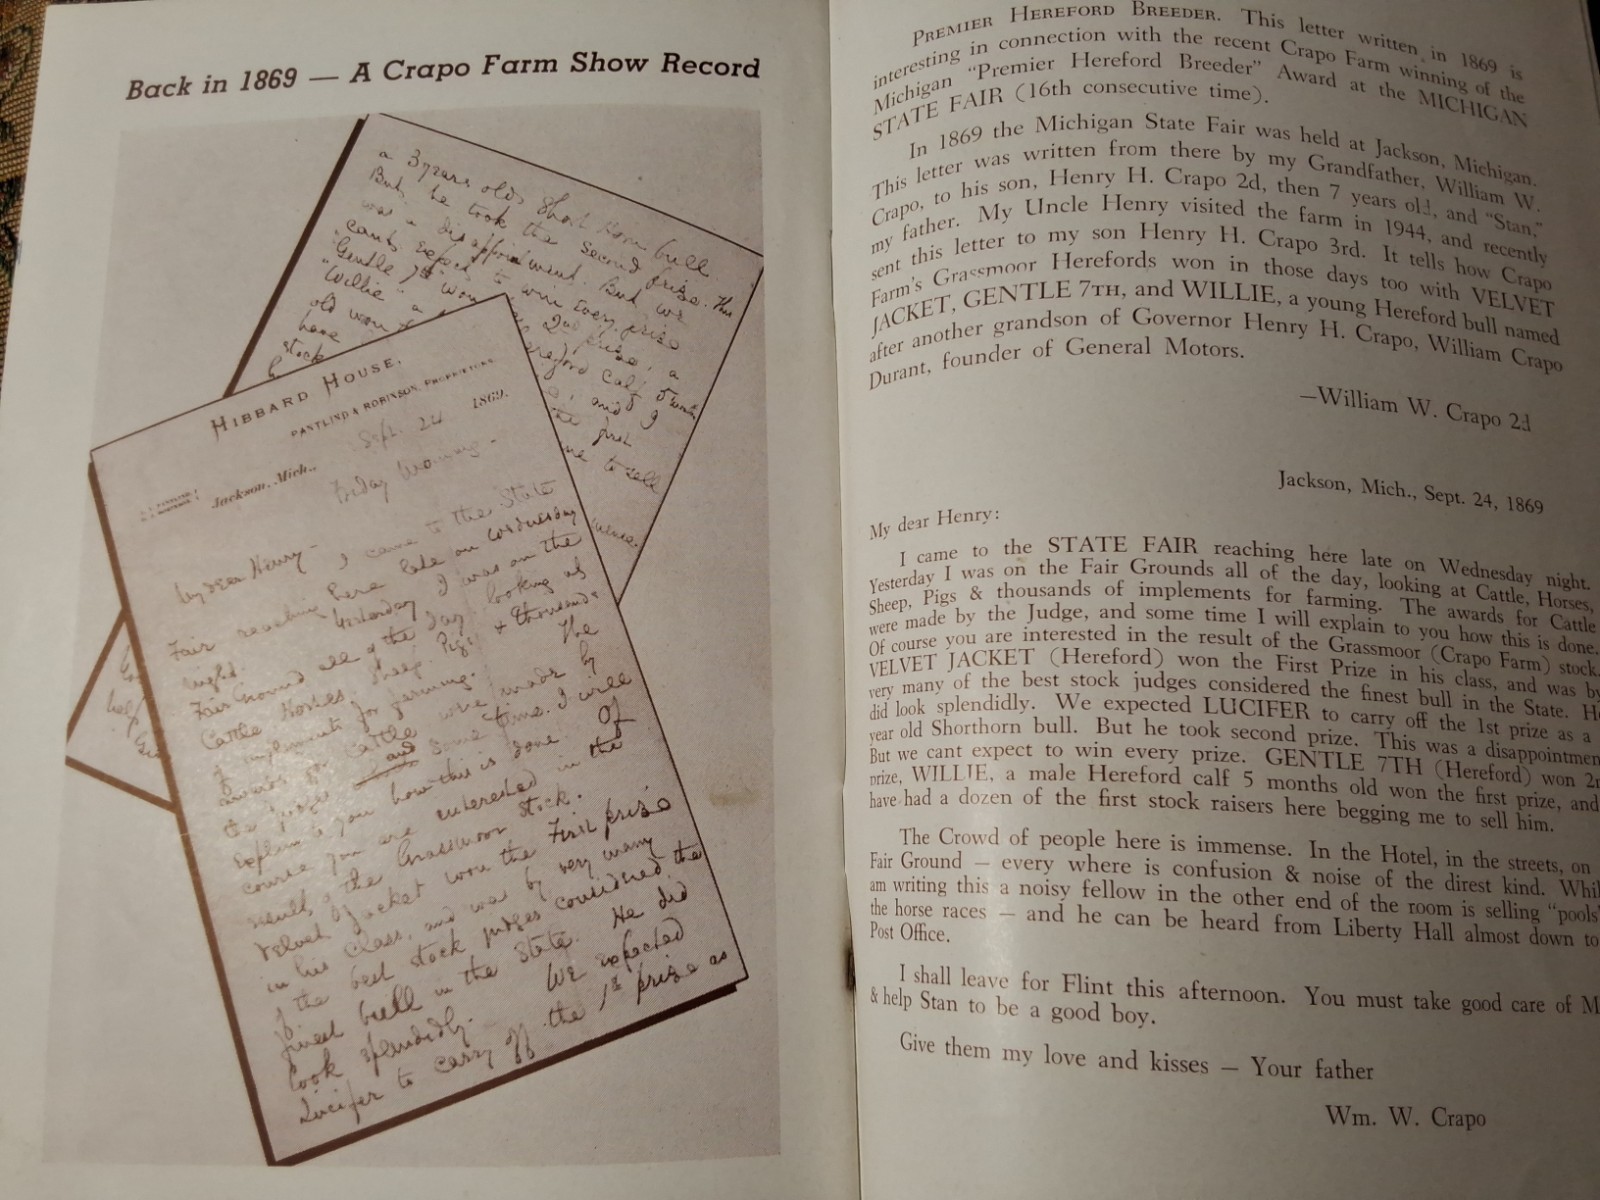 Back in 1869 — A Crapo Farm Show Record
a 3 years old Short Horn bull.
But he took the second prize. This
was a disappointment. But we
cant expect to win every prize
"Gentle 7th" won 2nd prize,
"Willie" a
old won
have
stock
calf 5 months
and I
the first
me to sell
HIBBARD HOUSE.
PANTLIND & ROBINSON, PROPRIETORS.
Jackson, Mich., Sept. 24 1869.
Friday Morning -
My dear Henry -
I came to the State
Fair reaching here late on Wednesday
night. Yesterday I was on the
Fair Ground all of the day looking at
Cattle Horses, Sheep, Pigs & thousands
of implements for farming. The
awards for Cattle were made by
the judges and some time I will
explain to you how this is done. Of
course you are interested in the
result of the Grassmoor Stock.
Velvet Jacket won the First prize
in his class, and was by very many
of the best stock judges considered the
finest bull in the State. He did
look splendidly. We expected
Lucifer to carry off the 1st prize as
PREMIER HEREFORD BREEDER. This letter written in 1869 is
interesting in connection with the recent Crapo Farm winning of the
Michigan "Premier Hereford Breeder" Award at the MICHIGAN
STATE FAIR (16th consecutive time).
In 1869 the Michigan State Fair was held at Jackson, Michigan.
This letter was written from there by my Grandfather, William W.
Crapo, to his son, Henry H. Crapo 2d, then 7 years old, and "Stan,"
my father. My Uncle Henry visited the farm in 1944, and recently
sent this letter to my son Henry H. Crapo 3rd. It tells how Crapo
Farm's Grassmoor Herefords won in those days too with VELVET
JACKET, GENTLE 7TH, and WILLIE, a young Hereford bull named
after another grandson of Governor Henry H. Crapo, William Crapo
Durant, founder of General Motors.
—William W. Crapo 2d
Jackson, Mich., Sept. 24, 1869
My dear Henry:
I came to the STATE FAIR reaching here late on Wednesday night.
Yesterday I was on the Fair Grounds all of the day, looking at Cattle, Horses,
Sheep, Pigs & thousands of implements for farming. The awards for Cattle
were made by the Judge, and some time I will explain to you how this is done.
Of course you are interested in the result of the Grassmoor (Crapo Farm) stock.
VELVET JACKET (Hereford) won the First Prize in his class, and was by
very many of the best stock judges considered the finest bull in the State. H
did look splendidly. We expected LUCIFER to carry off the 1st prize as a
year old Shorthorn bull. But he took second prize. This was a disappointmen
But we cant expect to win every prize. GENTLE 7TH (Hereford) won 2
prize, WILLIE, a male Hereford calf 5 months old won the first prize, and
have had a dozen of the first stock raisers here begging me to sell him.
The Crowd of people here is immense. In the Hotel, in the streets, on
Fair Ground — every where is confusion & noise of the direst kind. Whil
am writing this a noisy fellow in the other end of the room is selling "pools"
the horse races — and he can be heard from Liberty Hall almost down to
Post Office.
I shall leave for Flint this afternoon. You must take good care of M
& help Stan to be a good boy.
Give them my love and kisses — Your father
Wm. W. Crapo